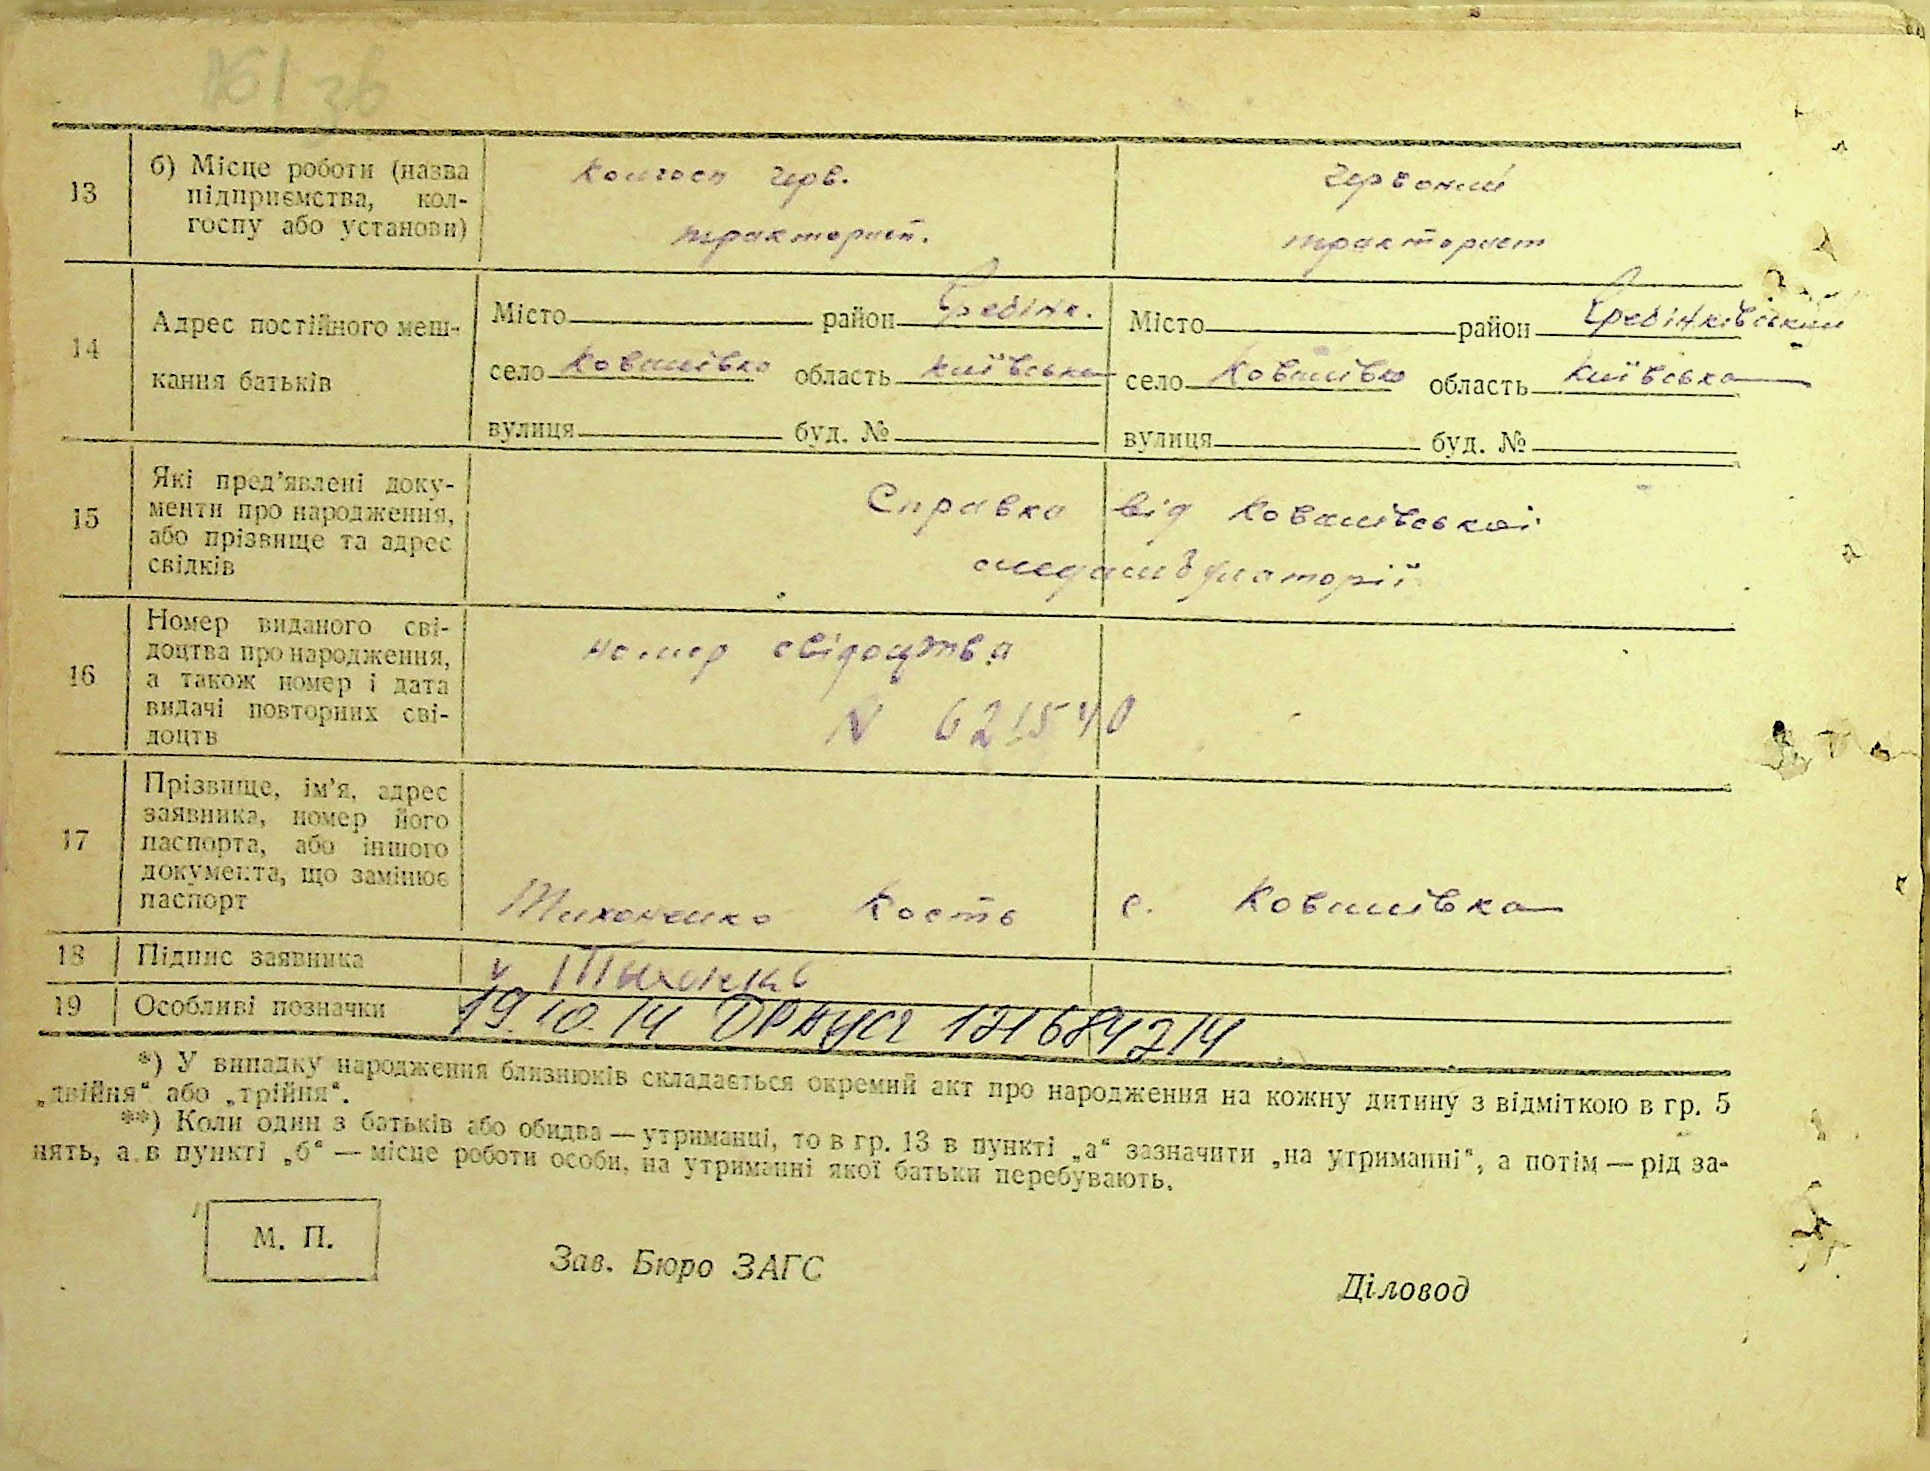 161 зв
13
б) Місце роботи (назва
підприємства, кол-
госпу або установи)
Колгосп Черв.
тракторист.
Червоний
тракторист
14
Адрес постійного меш-
кання батьків
Місто район Гребінк.
село Ковалівка область Київська
вулиця буд. №
Місто район Гребінківський
село Ковалівка область Київська
вулиця буд. №
15
Які пред'явлені доку-
менти про народження,
або прізвище та адрес
свідків
Справка від Ковалівської
медамбулаторії
16
Номер виданого сві-
доцтва про народження,
а також номер і дата
видачі повторних сві-
доцтв
номер свідоцтва
N 621540
17
Прізвище, ім'я, адрес
заявника, номер його
паспорта, або іншого
документа, що замінює
паспорт
Тихоненко Кость с. Ковалівка
18
Підпис заявника
19
Особливі позначки
19.10.14 ДРАЦСГ 1216842714
*) У випадку народження близнюків складається окремий акт про народження на кожну дитину з відміткою в гр. 5
„двійня“ або „трійня“.
**) Коли один з батьків або обидва — утриманці, то в гр. 13 в пункті „а“ зазначити „на утриманні“, а потім — рід за-
нять, а в пункті „б“ — місце роботи особи, на утриманні якої батьки перебувають.
М. П.
Зав. Бюро ЗАГС
Діловод